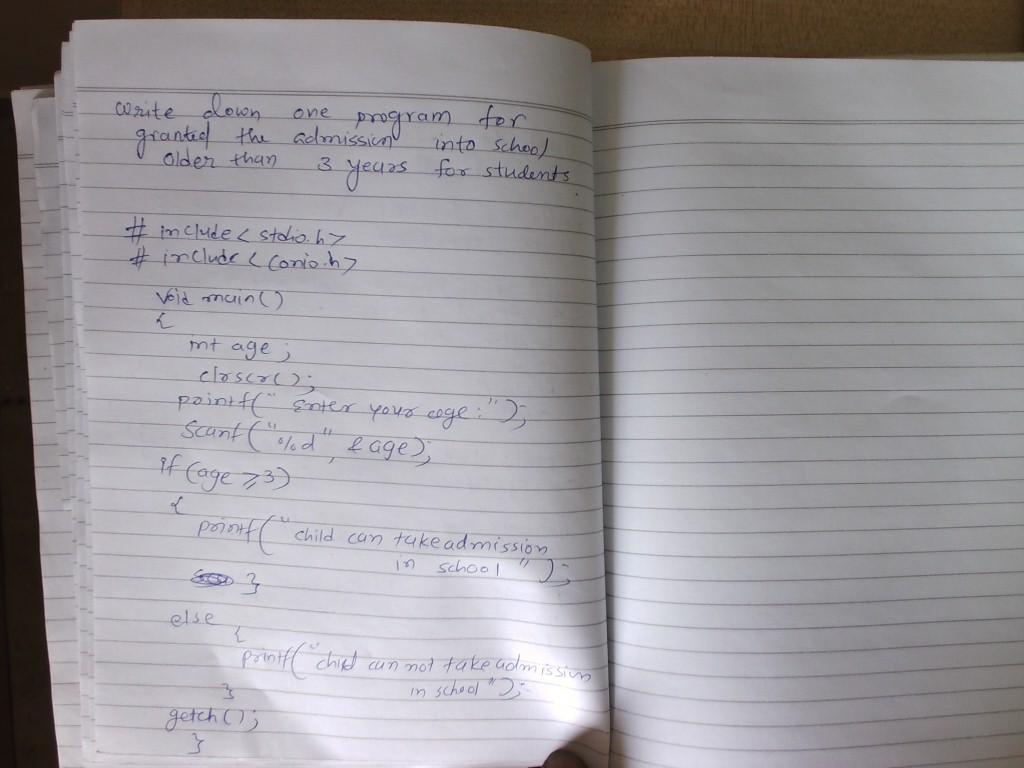 write down one program for
granted the admission into school
older than 3 years for students.
# include < stdio.h>
# include < conio.h>
void main()
{
int age;
clrscr();
printf(" Enter your age:");
Scanf("%d", &age);
if (age ≥3)
{
printf(" child can take admission
in school ");
}
else
{
printf("child can not take admission
in school");
}
getch();
}